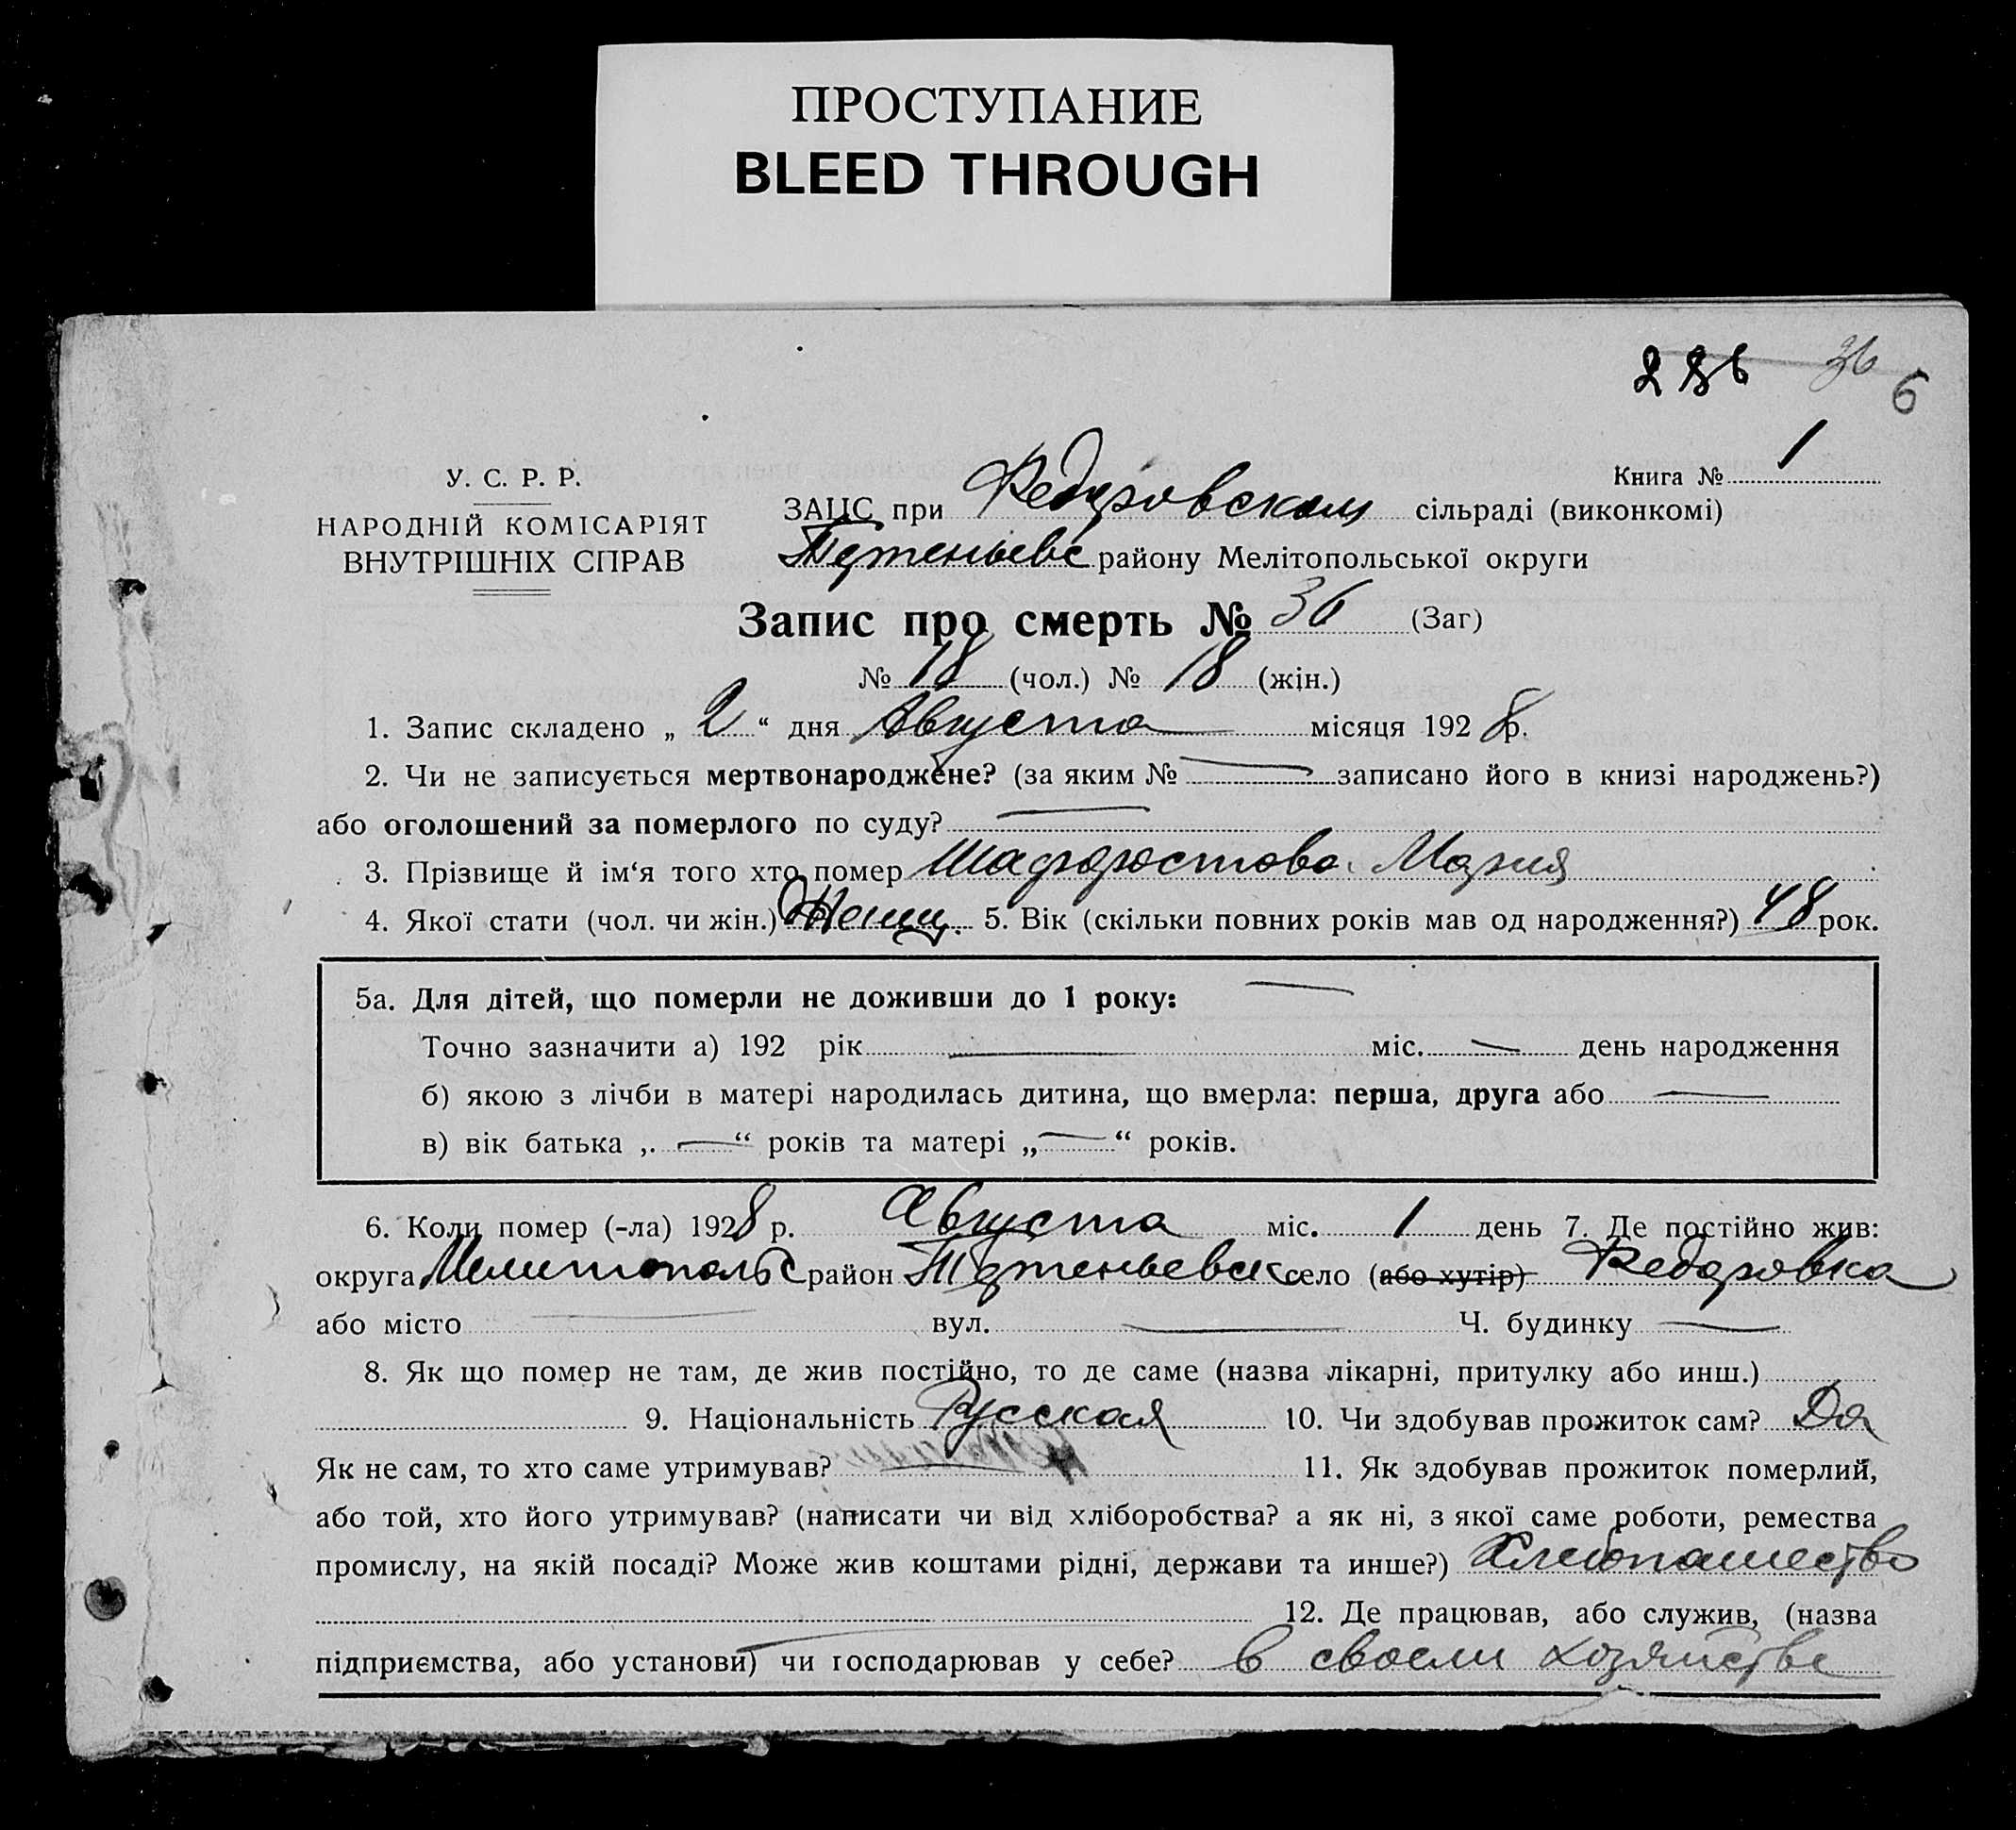 ПРОСТУПАНИЕ
BLEED THROUGH
236 36 6
Книга № 1
У. С. Р. Р.
НАРОДНІЙ КОМІСАРІЯТ
ВНУТРІШНІХ СПРАВ
ЗАЦС при Федоровском сільраді (виконкомі)
району Мелітопольської округи
Запис про смерть № 36 (Заг)
№ 18 (чол.) № 18 (жін.)
1. Запис складено „ 2 “ дня Августа місяця 192 8 р.
2. Чи не записується мертвонароджене? (за яким № — записано його в книзі народжень?)
або оголошений за померлого по суду? —
3. Прізвище й ім‘я того хто помер Мария
4. Якої стати (чол. чи жін.) Женщ. 5. Вік (скільки повних років мав од народження?) 48 рок.
5а. Для дітей, що померли не доживши до 1 року: —
Точно зазначити а) 192 рік — міс. — день народження
б) якою з лічби в матері народилась дитина, що вмерла: перша, друга або —
в) вік батька ,. — “ років та матері „ — “ років.
6. Коли помер (-ла) 1928 р. Августа міс. 1 день 7. Де постійно жив:
округа Мелитопольс район село (або хутір) Федоровка
або місто — вул. — Ч. будинку —
8. Як що помер не там, де жив постійно, то де саме (назва лікарні, притулку або инш.)
9. Національність Русская 10. Чи здобував прожиток сам? Да
Як не сам, то хто саме утримував? — 11. Як здобував прожиток померлий,
або той, хто його утримував? (написати чи від хліборобства? а як ні, з якої саме роботи, ремества
промислу, на якій посаді? Може жив коштами рідні, держави та инше?) Хлебопашество
12. Де працював, або служив, (назва
підприємства, або установи) чи господарював у себе? в своем хозяйстве